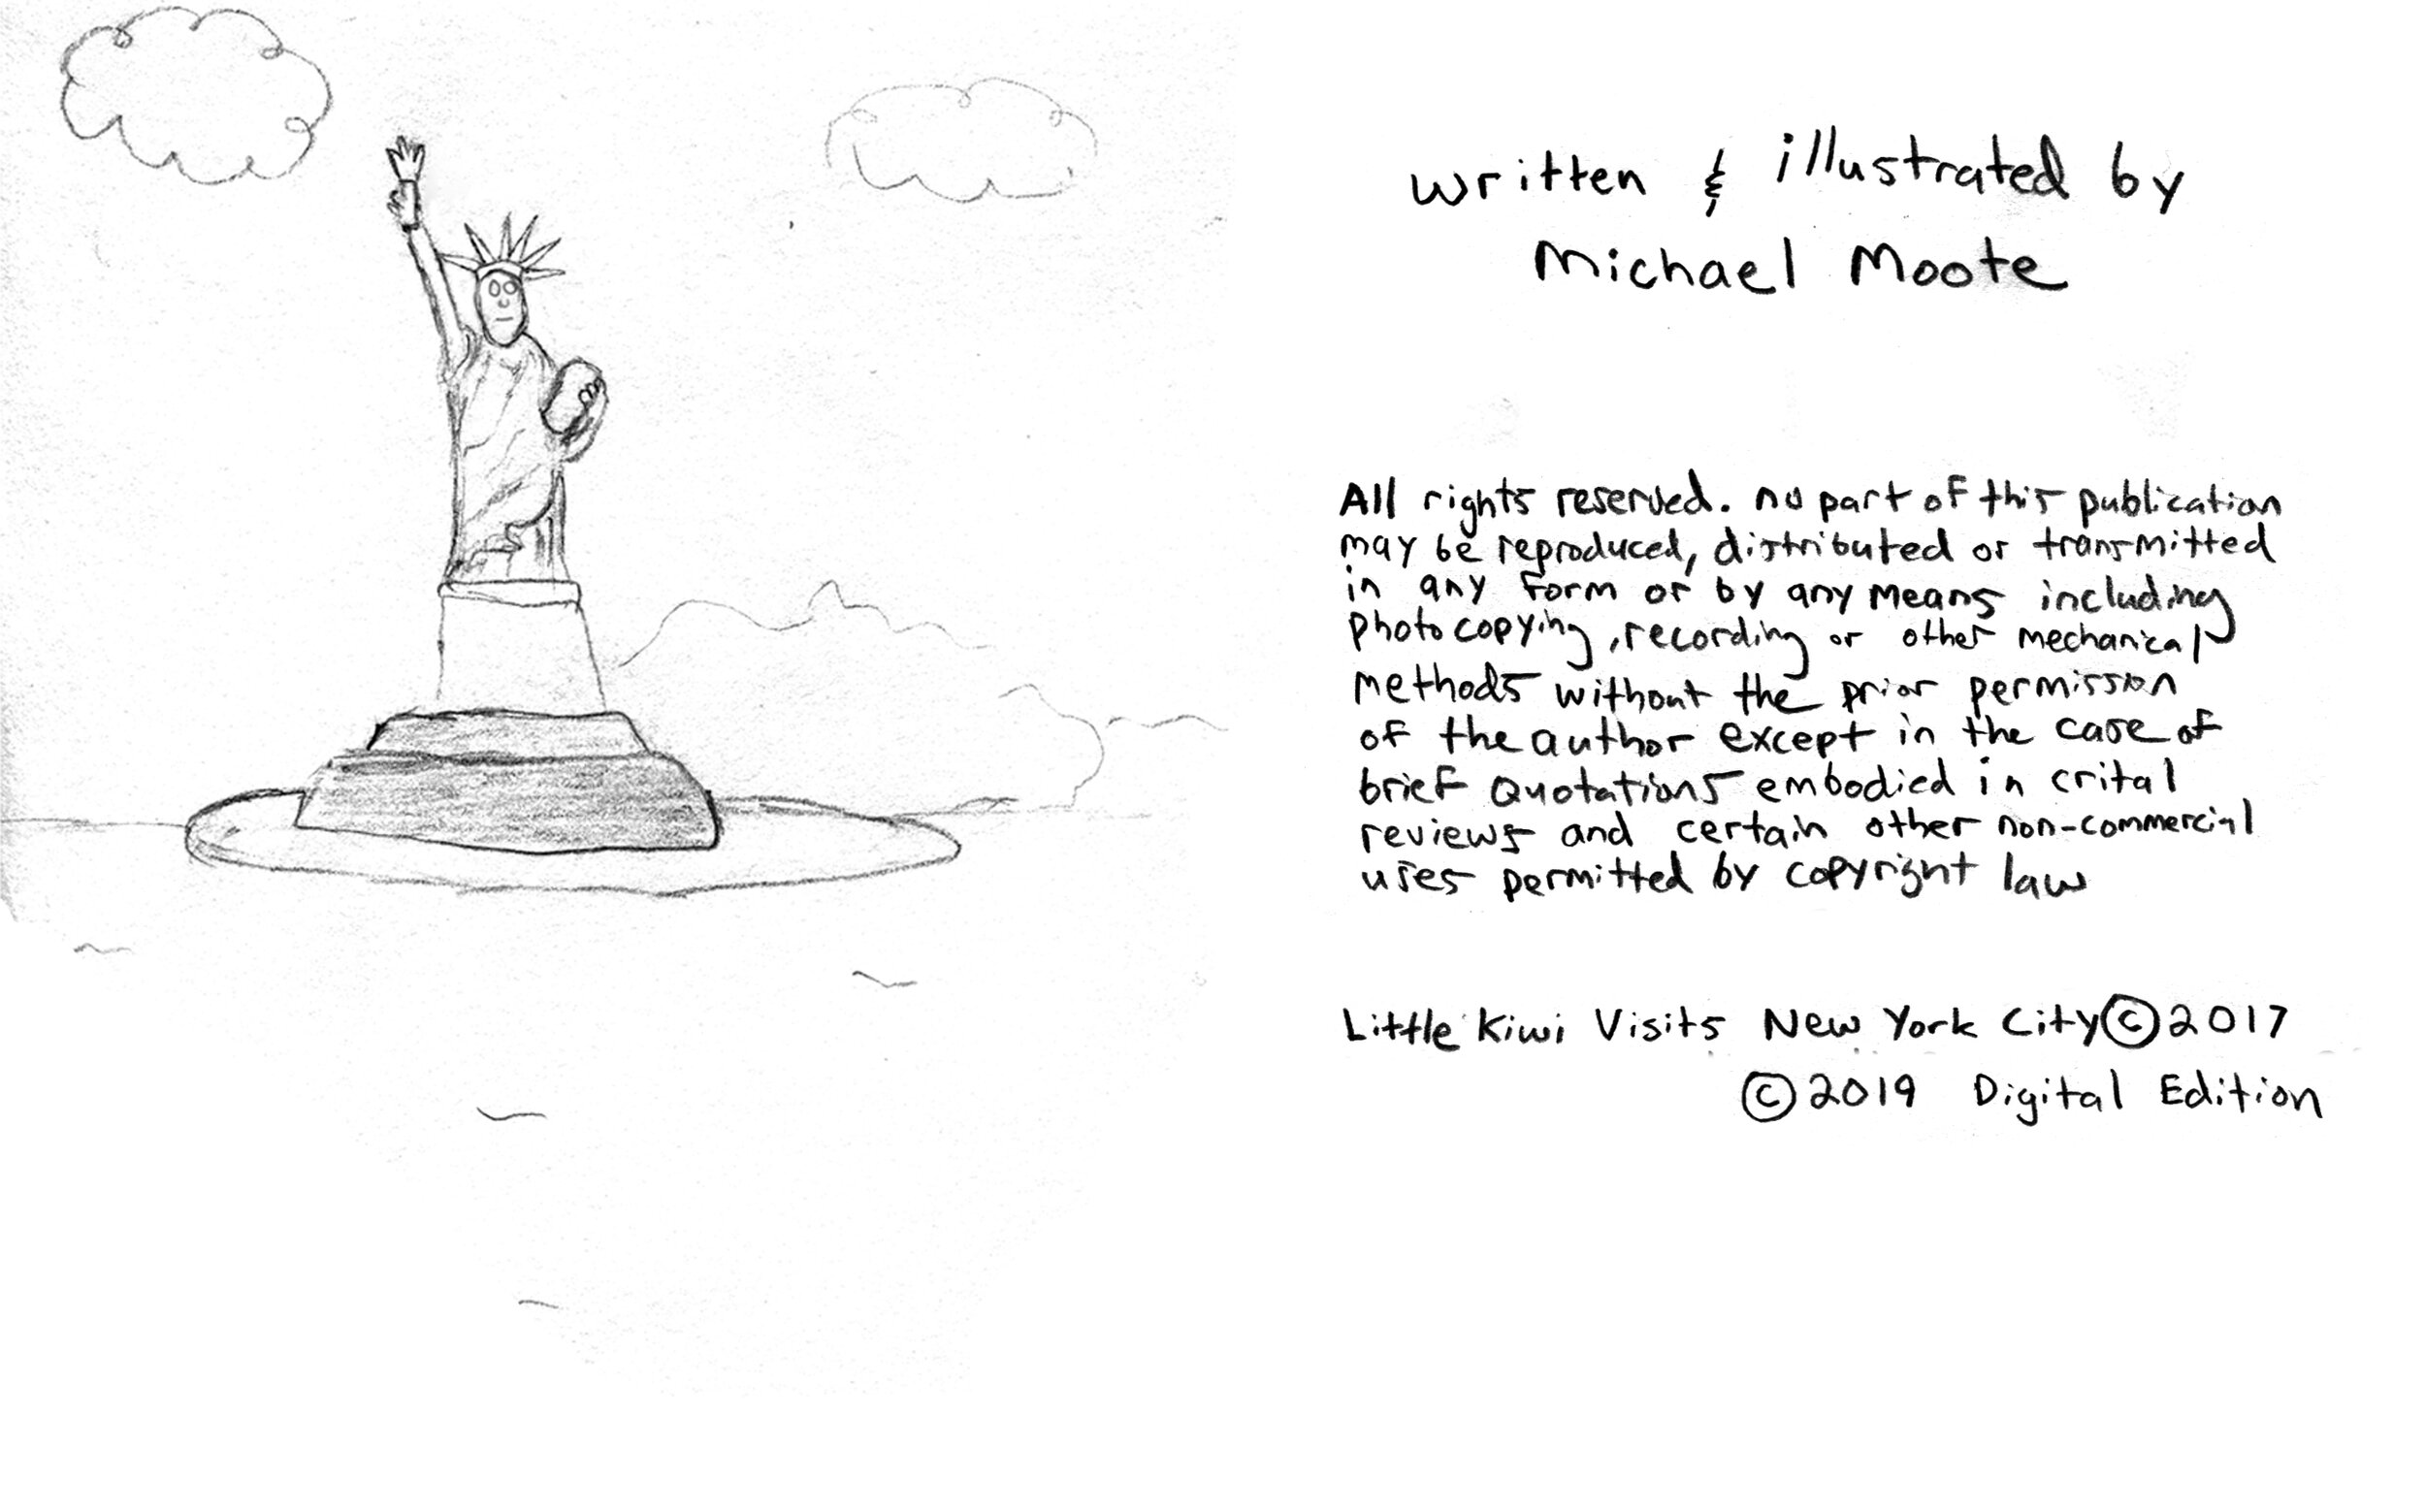 written & illustrated by
Michael Moote
All rights reserved. no part of this publication
may be reproduced, distributed or transmitted
in any form or by any means including
photocopying, recording or other mechanical
methods without the prior permission
of the author except in the case of
brief quotations embodied in crital
reviews and certain other non-commercial
uses permitted by copyright law
Little Kiwi Visits New York City © 2017
© 2019 Digital Edition